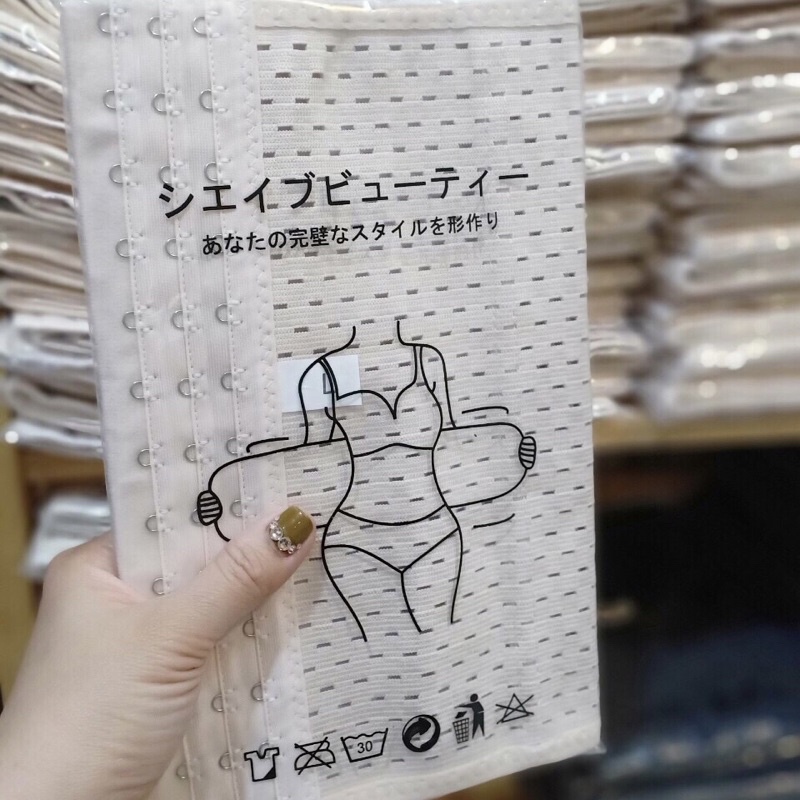 シエイブビューティー
あなたの完璧なスタイルを形作り
L
30